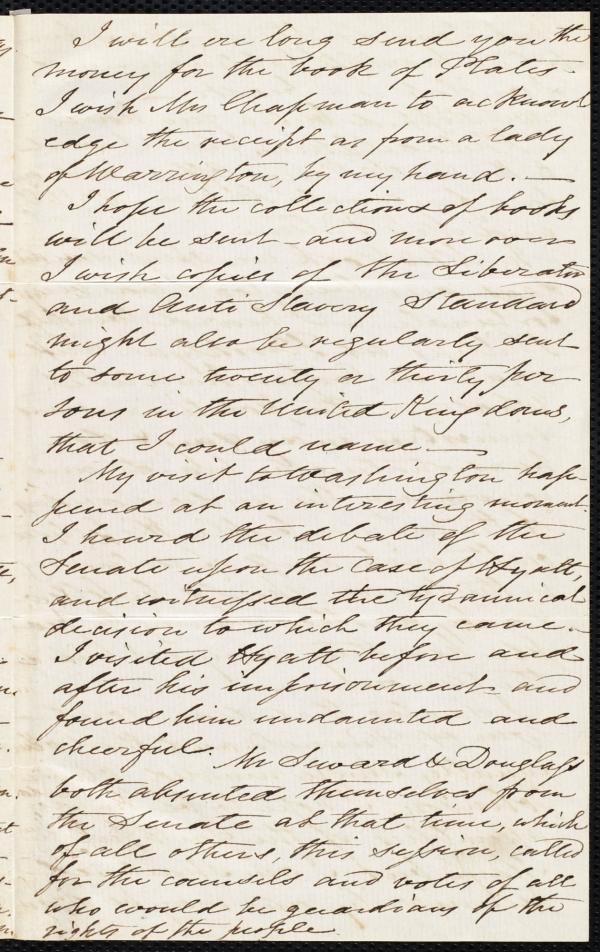 I will ere long send you the
money for the book of Plates.
I wish Mrs Chapman to acknowl
edge the receipt as from a lady
of Warrington, by my hand. —
I hope the collections of books
will be sent – and moreover
I wish copies of the Liberator
and Anti Slavery Standard
might also be regularly sent
to some twenty or thirty per
sons in the United Kingdoms,
that I could name —
My visit to Washington hap-
pened at an interesting moment.
I heard the debate of the
Senate upon the case of Hyatt,
and witnessed the tyrannical
decision to which they came. –
I visited Hyatt before and
after his imprisonment and
found him undaunted and
cheerful. Mr Seward & Douglass
both absented themselves from
the Senate at that time, which
of all others, this session, called
for the counsels and votes of all
who would be guardians of the
rights of the people